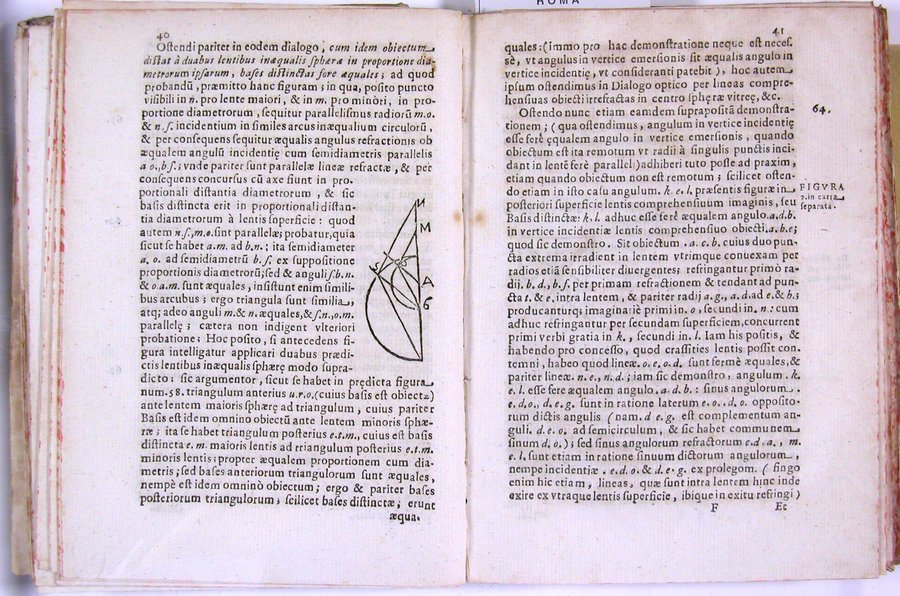 ROMA
40
Ostendi pariter in eodem dialogo, cum idem obiectum
distat à duabus lentibus inæqualis sphæræ in proportione dia-
metrorum ipsarum, bases distinctas fore æquales; ad quod
probandū, præmitto hanc figuram; in qua, posito puncto
visibili in n. pro lente maiori, & in m. pro minori, in pro-
portione diametrorum, sequitur parallelismus radiorū m.o.
& n.s. incidentium in similes arcus inæqualium circulorū,
& per consequens sequitur æqualis angulus refractionis ob
æqualem angulū incidentię cum semidiametris parallelis
a o., b s.; vnde pariter sunt parallelæ lineæ refractæ, & per
consequens concursus cū axe fiunt in pro-
portionali distantia diametrorum, & sic
basis distincta erit in proportionali distan-
tia diametrorum à lentis superficie: quod
autem n.s., m.o. sint parallelæ; probatur, quia
sicut se habet a.m. ad b.n.; ita semidiameter
a. o. ad semidiametrū b. s. ex suppositione
proportionis diametrorū; sed & anguli s.b.n.
& o.a.m. sunt æquales, insistunt enim simili-
bus arcubus; ergo triangula sunt similia,
atq; adeo anguli m.& n. æquales, & s.n., o.m.
parallelę; cætera non indigent vlteriori
probatione: Hoc posito, si antecedens fi-
gura intelligatur applicari duabus prædi-
ctis lentibus inæqualis sphæræ modo supra-
dicto; sic argumentor, sicut se habet in prędicta figura
num. 58. triangulum anterius u.r.o. (cuius basis est obiectū)
ante lentem maioris sphæræ ad triangulum, cuius pariter
Basis est idem omnino obiectū ante lentem minoris sphæ-
ræ; ita se habet triangulum posterius e.t.m., cuius est basis
distincta e.m. maioris lentis ad triangulum posterius e.t.m.
minoris lentis: propter æqualem proportionem cum dia-
metris; sed bases anteriorum triangulorum sunt æquales,
nempè est idem omninò obiectum; ergo & pariter bases
posteriorum triangulorum, scilicet bases distinctæ, erunt
æqua.
N
M
S
o
A
B
41
quales: (immo pro hac demonstratione neque est necess-
se, vt angulus in vertice emersionis sit æqualis angulo in
vertice incidentię, vt consideranti patebit), hoc autem
ipsum ostendimus in Dialogo optico per lineas compre-
hensiuas obiecti irrefractas in centro sphęræ vitreę, &c.
Ostendo nunc etiam eamdem suprapositā demonstra-
tionem; (qua ostendimus, angulum in vertice incidentię
esse ferè ęqualem angulo in vertice emersionis, quando
obiectum est ita remotum vt radii à singulis punctis inci-
dant in lentē ferè parallel.) adhiberi tuto posse ad praxim,
etiam quando obiectum non est remotum; scilicet osten-
do etiam in isto casu angulum. k. e. l. præsentis figuræ in
posteriori superficie lentis comprehensiuum imaginis, seu
Basis distinctæ: k. l. adhuc esse ferè æqualem angulo. a.d.b.
in vertice incidentiæ lentis comprehensiuo obiecti. a.b.c;
quod sic demonstro. Sit obiectum . a. c. b. cuius duo pun-
cta extrema irradient in lentem vtrimque conuexam per
radios etiā sensibiliter diuergentes; refringantur primò ra-
dii. b. d., b. f. per primam refractionem & tendant ad pun-
cta t. & e. intra lentem, & pariter radij a.g., a.d. ad e. & h;
producanturq; imaginariè primi in. o, secundi in. n: cum
adhuc refringantur per secundam superficiem, concurrent
primi verbi gratia in k., secundi in. l. Iam his positis, &
habendo pro concesso, quod crassities lentis possit con-
temni, habeo quod lineæ. o.e. o.d. sunt fermè æquales, &
pariter lineæ. n. e., n. d.; iam sic demonstro, angulum . k.
e. l. esse fere æqualem angulo. a. d. b.: sinus angulorum .
e. d. o., d. e. g. sunt in ratione laterum e. o. . d. o. opposito-
rum dictis angulis (nam. d e. g. est complementum an-
guli. d e. o. ad semicirculum, & sic habet communem
sinum d. o.); sed sinus angulorum refractorum e.d.a., m.
e. l. sunt etiam in ratione sinuum dictorum angulorum,
nempe incidentiæ . e. d. o. & d. e. g. ex prolegom. (fingo
enim hic etiam, lineas, quæ sunt intra lentem hinc inde
exire ex vtraque lentis superficie, ibique in exitu refringi)
F Et
64.
FIGVRA
2. in carta
separata.